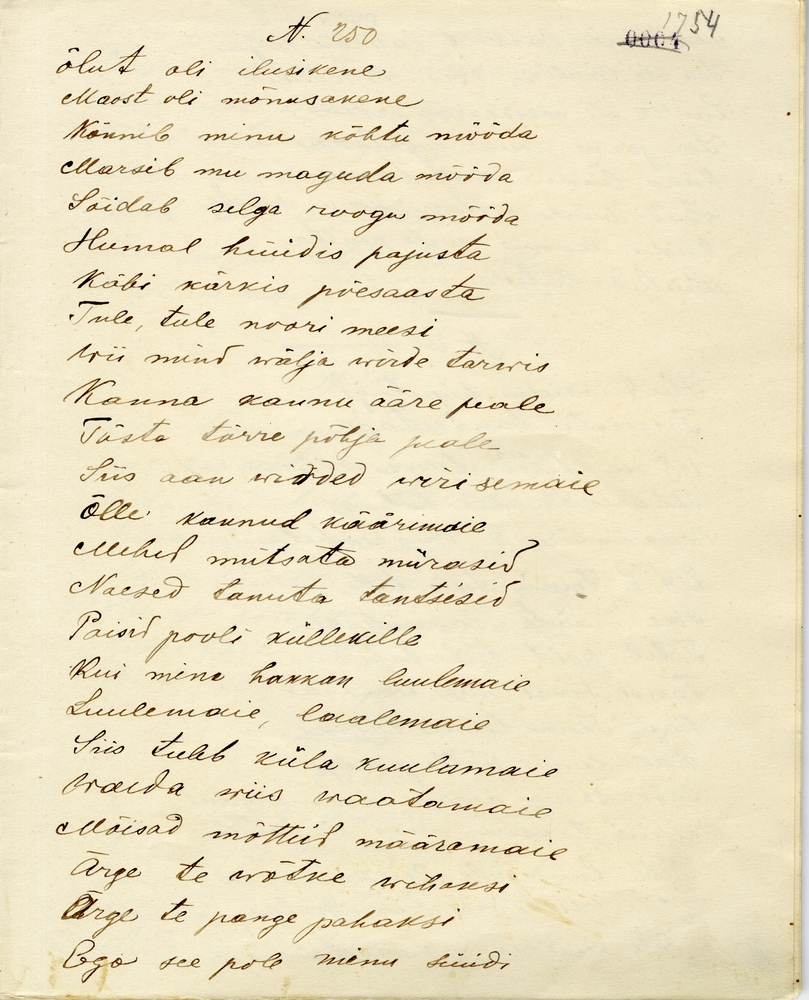 N. 250
1754
0004
õlut oli ilusikene
Moost oli mõnusakene
Kõnnib minu kõhtu mööda
Marsib mu maguda mööda
Sõidab selga roogu mööda
Humal hüüdis pajusta
Käbi kärkis põesaasta
Tule, tule noori meesi
Wii mind wälja wirde tarwis
Kanna kannu ääre peale
Tõsta tõrre põhja peale
Siis aan wirded wirisemaie
Õlle kannud käärimaie
Mehed mütsata mürasid
Naesed tanuta tantsisid
Poisid pooli küllekille
Kui mina hakkan luulemaie
Luulemaie, laalemaie
Siis tuleb küla kuulamaie
Walda wiis waatamaie
Mõisad mõttid määramaie
Ärge te wõtke wihaksi
Ärge te pange pahaksi
Ega see pole minu süüdi